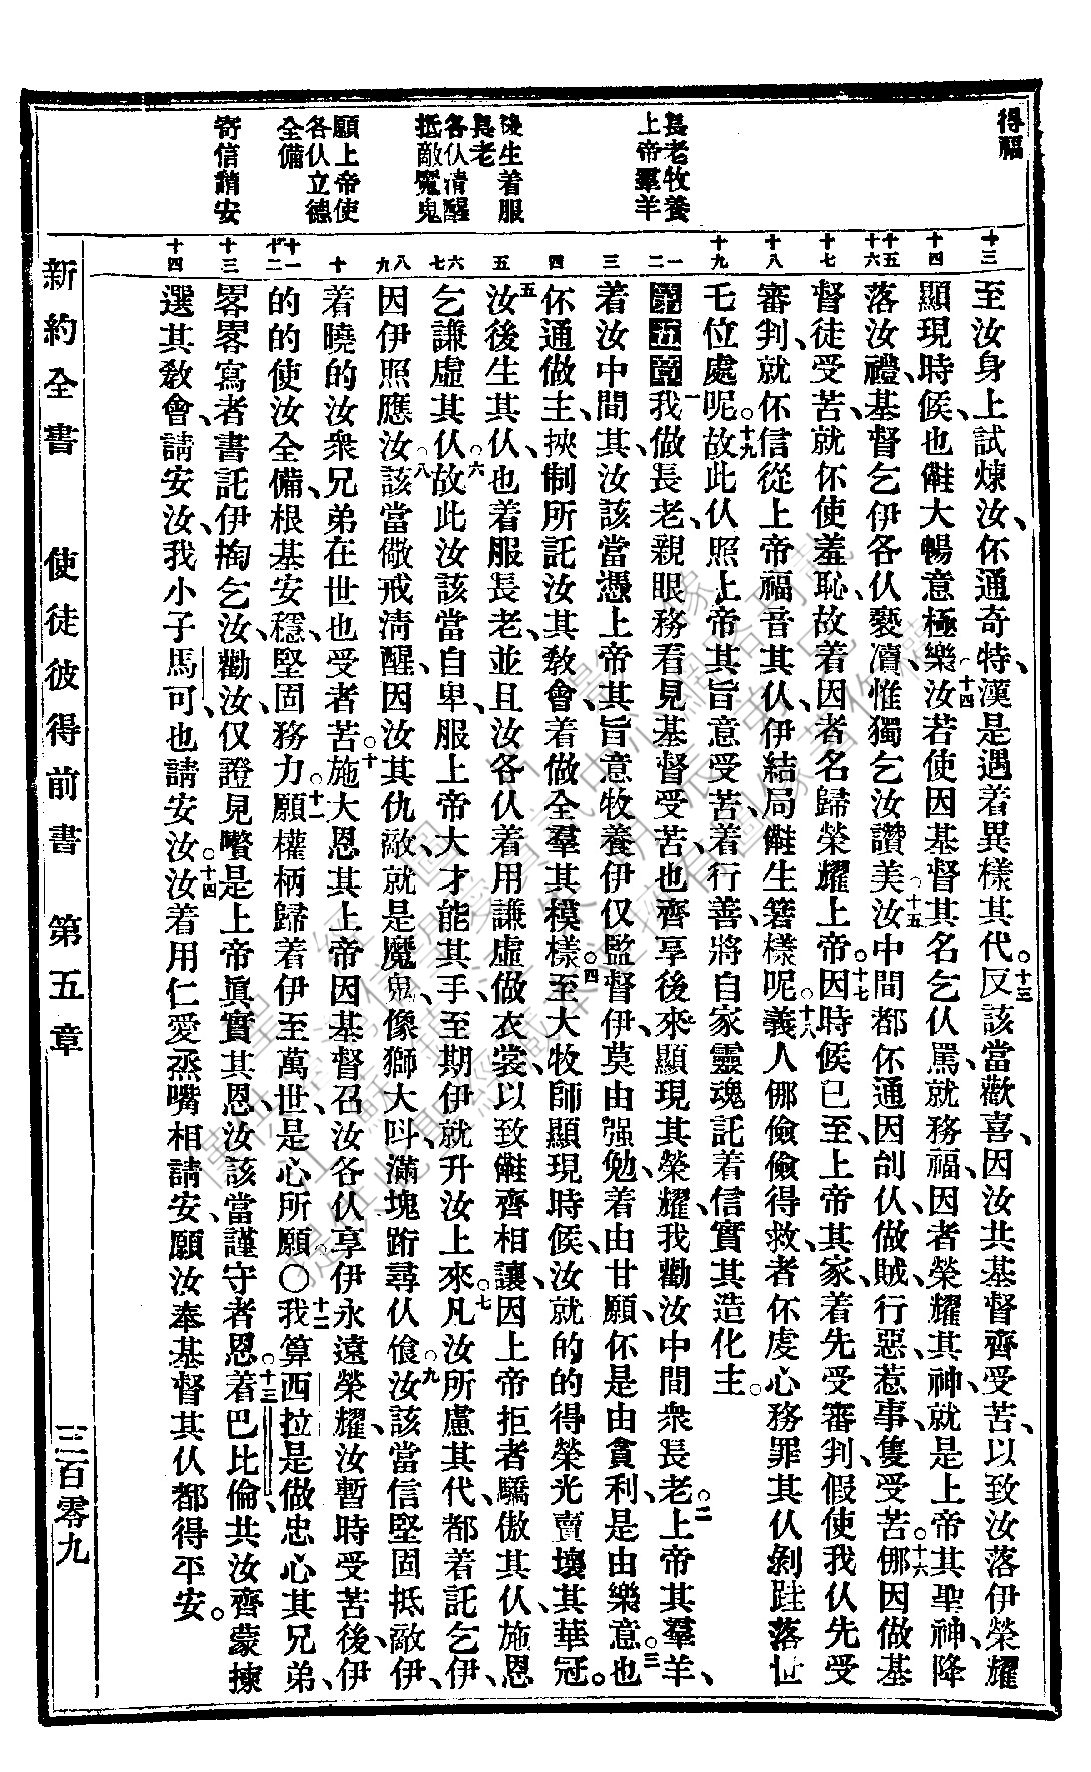 得福
長老牧養
上帝羣羊
後生着服
長老
各仈清醒
抵敵魔鬼
願上帝使
各仈立德
全備
寄信請安
十三
十四
十五
十六
十七
十八
十九
一
二
三
四
五
六
七
八
九
十
十一
十二
十三
十四
至汝身上試煉汝、伓通奇特、漢是遇着異樣其代。十三反該當歡喜、因汝共基督齊受苦、以致汝落伊榮耀
顯現時候、也㒤大暢意極樂、十四汝若使因基督其名乞仈罵、就務福、因者榮耀其神、就是上帝其聖神、降
落汝禮、基督乞伊各仈褻瀆、惟獨乞汝讚美、十五汝中間都伓通因刣仈做賊、行惡惹事、隻受苦。十六㑚因做基
督徒受苦、就伓使羞恥、故着因者名歸榮耀上帝。十七因時候已至、上帝其家、着先受審判、假使我仈先受
審判、就伓信從上帝福音其仈、伊結局㒤生簭樣呢。十八義人㑚儉儉得救、者伓虔心務罪其仈、剝跬落世
乇位處呢。十九故此仈照上帝其旨意受苦、着行善、將自家靈魂託着信實其造化主。
第五章 一我做長老、親眼務看見基督受苦、也齊享後來顯現其榮耀、我勸汝中間衆長老。二上帝其羣羊、
着汝中間其、汝該當憑上帝其旨意牧養伊、仅監督伊、莫由强勉、着由甘願、伓是由貪利、是由樂意。三也
伓通做主、挾制所託汝其敎會、着做全羣其模樣。四至大牧師顯現時候、汝就的的得榮光賣壞其華冠。
五汝後生其仈、也着服長老、並且汝各仈着用謙虛做衣裳、以致㒤齊相讓、因上帝拒者驕傲其仈、施恩
乞謙虛其仈。六故此汝該當自卑、服上帝大才能其手、至期伊就升汝上來。七凡汝所慮其代、都着託乞伊、
因伊照應汝。八汝該當儆戒淸醒、因汝其仇敵、就是魔鬼、像獅大呌、滿塊跻尋仈飧。九汝該當信堅固抵敵伊、
着曉的汝衆兄弟在世、也受者苦。十施大恩其上帝、因基督召汝各仈享伊永遠榮耀、汝暫時受苦後、伊
的的使汝全備、根基安穩、堅固務力。十一願權柄歸着伊、至萬世、是心所願。○十二我算西拉是做忠心其兄弟、
畧畧寫者書託伊掏乞汝、勸汝、仅證見嚽是上帝眞實其恩、汝該當謹守者恩。十三着巴比倫共汝齊蒙揀
選其敎會、請安汝、我小子馬可也請安汝。十四汝着用仁愛烝嘴相請安、願汝奉基督其仈都得平安。
新約全書 使徒彼得前書 第五章 三百零九